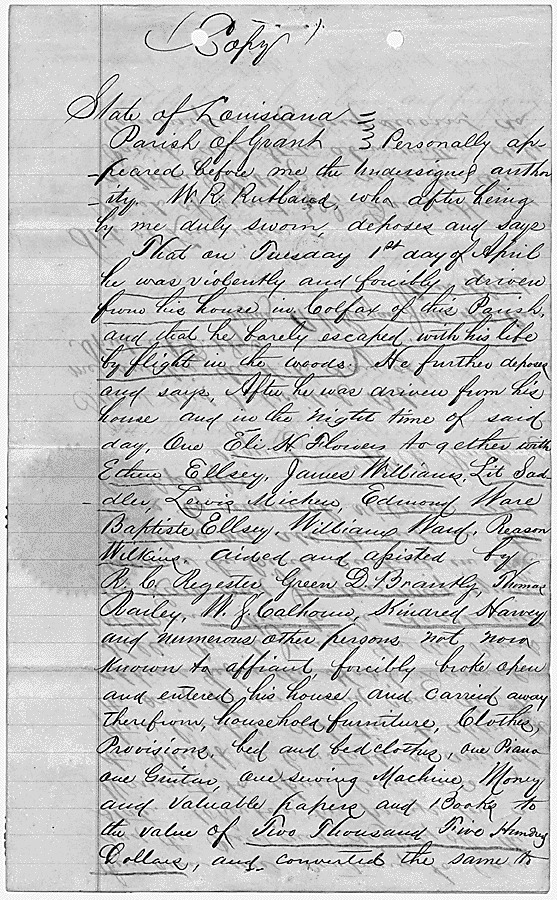 (Copy)
State of Louisiana
Parish of Grant Personally ap-
-peared before me the Undersigned author
-ity. W. R. Rutland, who after being
by me duly sworn, deposes and says
That on Tuesday 1st day of April
he was violently and forcibly driven
from his house in Colfax of this Parish,
and that he barely escaped with his life
by flight in the woods. He further deposes
and says, After he was driven from his
house and in the night time of said
day, One Eli H Flowers together with
Ellsey, James Williams, Lit Sad
-dler, Lewis Meekin, Edmond Ware
Baptiste Ellsey, William Ward, Reason
Wilkins. aided and assisted by
R. C. Register Green D. Brantly, Thomas
Railey, W. J. Calhoun, Kindred Harvey
and numerous other persons not now
known to affiant forcibly broke open
and entered his house and carried away
therefrom, household furniture, Clothes,
Provisions, bed and bedclothes, one Piano
one Guitar, one sewing Machine, Money
and valuable papers and Books to
the value of Two Thousand Five Hundred
Dollars, and converted the same to